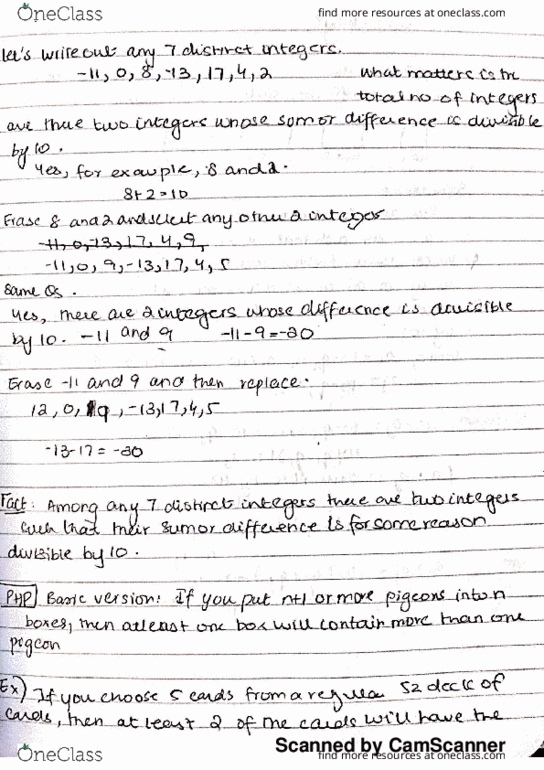 OneClass
find more resources at oneclass.com
let's write out any 7 distinct integers.
-11, 0, 8, -13, 17, 4, 2
what matters is the
total no of integers
are there two integers whose sum or difference is divisible
by 10.
Yes, for example, 8 and 2.
8+2=10
Erase 8 and 2 and select any other 2 integers
-11, 0, -13, 17, 4, 9,
-11, 0, 9, -13, 17, 4, 5
same Qs.
Yes, there are 2 integers whose difference is divisible
by 10. -11 and 9 -11-9=-20
Erase -11 and 9 and then replace.
12, 0, 19, -13, 17, 4, 5
-13-17 = -30
Fact: Among any 7 distinct integers there are two integers
such that their sum or difference is for some reason
divisible by 10.
PHP Basic version: If you put n+1 or more pigeons into n
boxes, then atleast one box will contain more than one
pigeon
Ex) If you choose 5 cards from a regular 52 deck of
cards, then at least 2 of the cards will have the
Scanned by CamScanner
OneClass
find more resources at oneclass.com